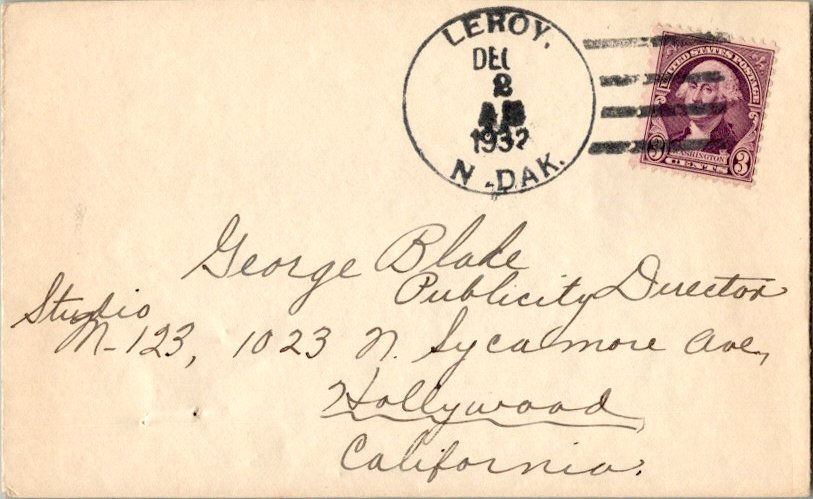 LEROY.
DEC
2
AM
1932
N. DAK.
UNITED STATES POSTAGE
WASHINGTON
3 CENTS 3
George Blake
Publicity Director
Studio
M-123, 1023 N. Sycamore Ave,
Hollywood
California.